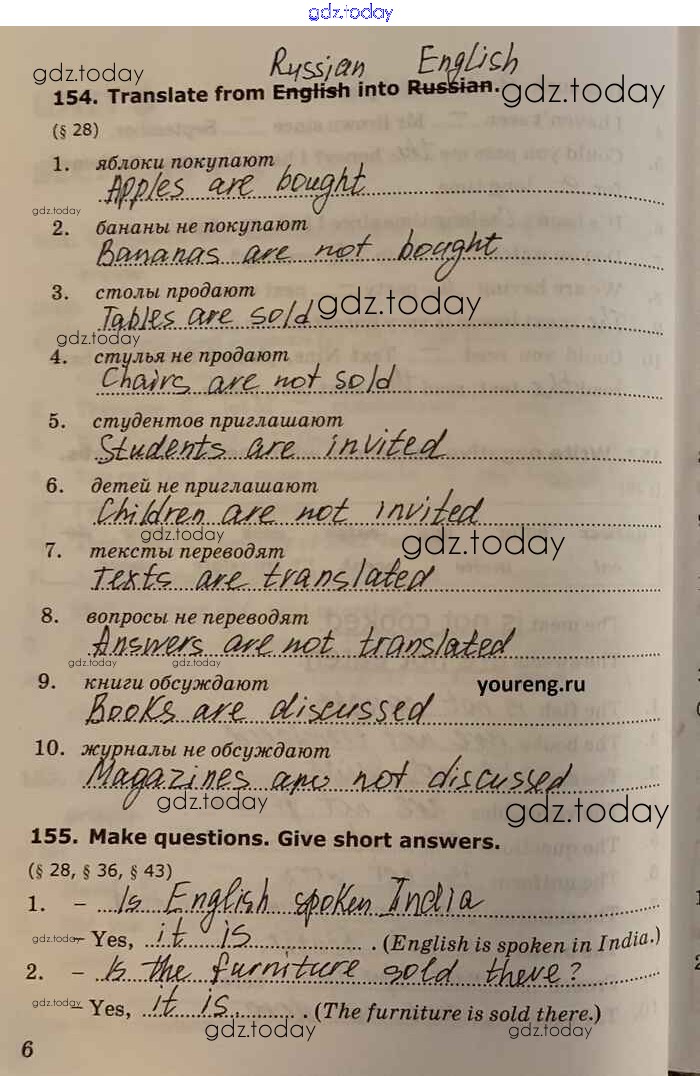 gdz.today
Russian English
gdz.today
154. Translate from English into Russian. gdz.today
(§ 28)
1. яблоки покупают
Apples are bought
gdz.today
2. бананы не покупают
Bananas are not bought
3. столы продают
Tables are sold gdz.today
gdz.today
4. стулья не продают
Chairs are not sold
5. студентов приглашают
Students are invited
6. детей не приглашают
Children are not invited
gdz.today
7. тексты переводят gdz.today
Texts are translated
8. вопросы не переводят
Answers are not translated
gdz.today gdz.today
9. книги обсуждают youreng.ru
Books are discussed
10. журналы не обсуждают
Magazines are not discussed
gdz.today gdz.today
155. Make questions. Give short answers.
(§ 28, § 36, § 43)
1. – Is English spoken India
gdz.today – Yes, it is . (English is spoken in India.)
2. – Is the furniture sold there?
gdz.today – Yes, it is . (The furniture is sold there.)
gdz.today gdz.today
6